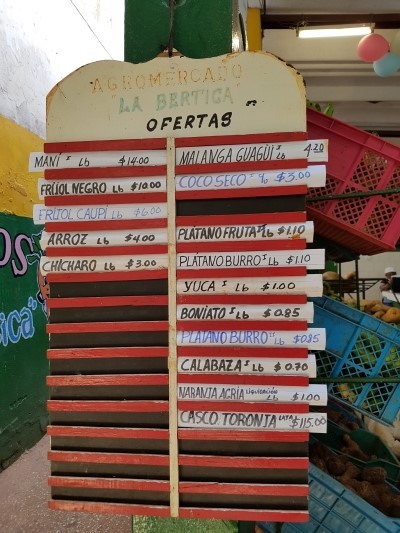 AGROMERCADO
"LA BERTICA"
OFERTAS
MANÍ I LB $14.00
FRIJOL NEGRO LB $10.00
FRIJOL CAUPÍ LB $6.00
ARROZ LB $4.00
CHÍCHARO LB $3.00
MALANGA GUAGÜI I LB 4.20
COCO SECO I $3.00
PLÁTANO FRUTA I LB $1.10
PLÁTANO BURRO I LB $1.10
YUCA I LB $1.00
BONIATO I LB $0.85
PLÁTANO BURRO II LB $0.85
CALABAZA I LB $0.70
NARANJA AGRIA LIQUIDACIÓN LB $1.00
CASCO TORONJA LATA $115.00